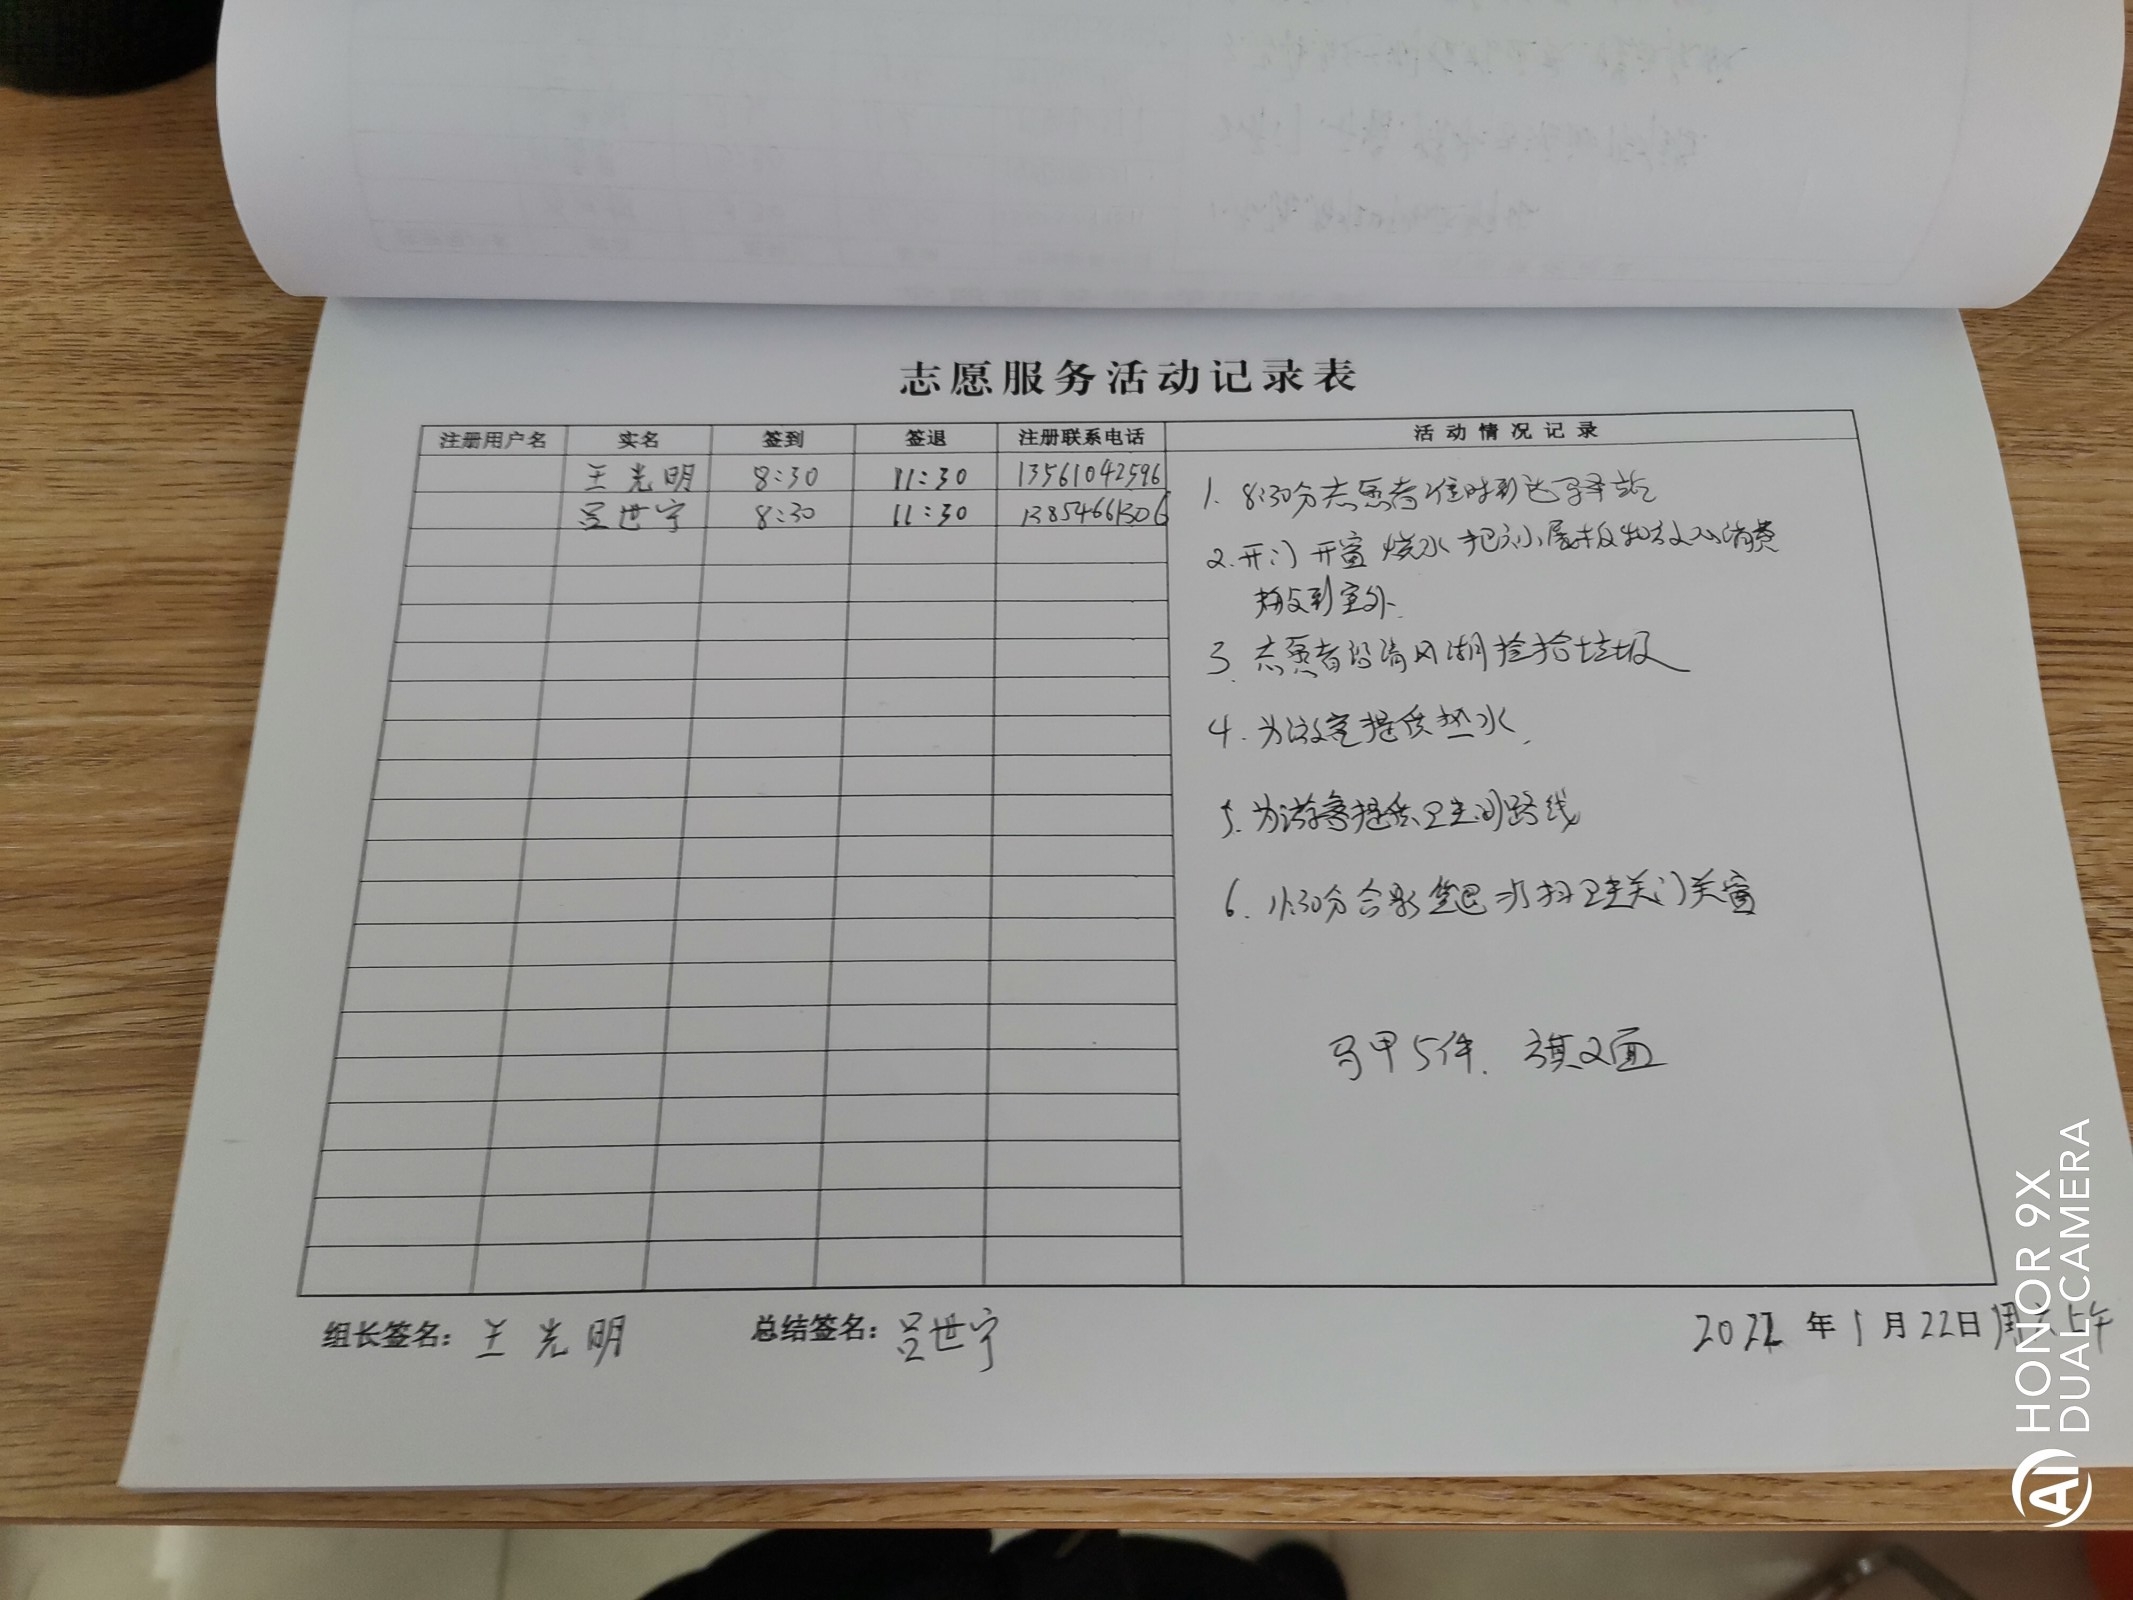 志愿服务活动记录表
注册用户名 实名 签到 签退 注册联系电话 活动情况记录
王光明 8:30 11:30 13561042596
吕世宇 8:30 11:30 13854661306
1. 8:30分志愿者准时到达驿站
2. 开门 开窗 烧水 把 展板 消费
摆放到室外.
3. 志愿者沿清风湖捡拾垃圾
4. 为游客提供热水.
5. 为游客提供卫生间路线
6. 11:30分合影签退 打扫卫生关门关窗
马甲5件. 旗2面
组长签名: 王光明 总结签名: 吕世宇 2022年1月22日周六上午
HONOR 9X
DUAL CAMERA
AI